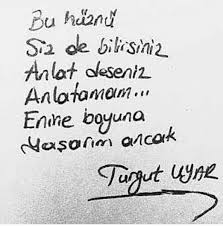 Bu hüznü
Siz de bilirsiniz
Anlat deseniz
Anlatamam...
Enine boyuna
Yaşarım ancak
Turgut UYAR